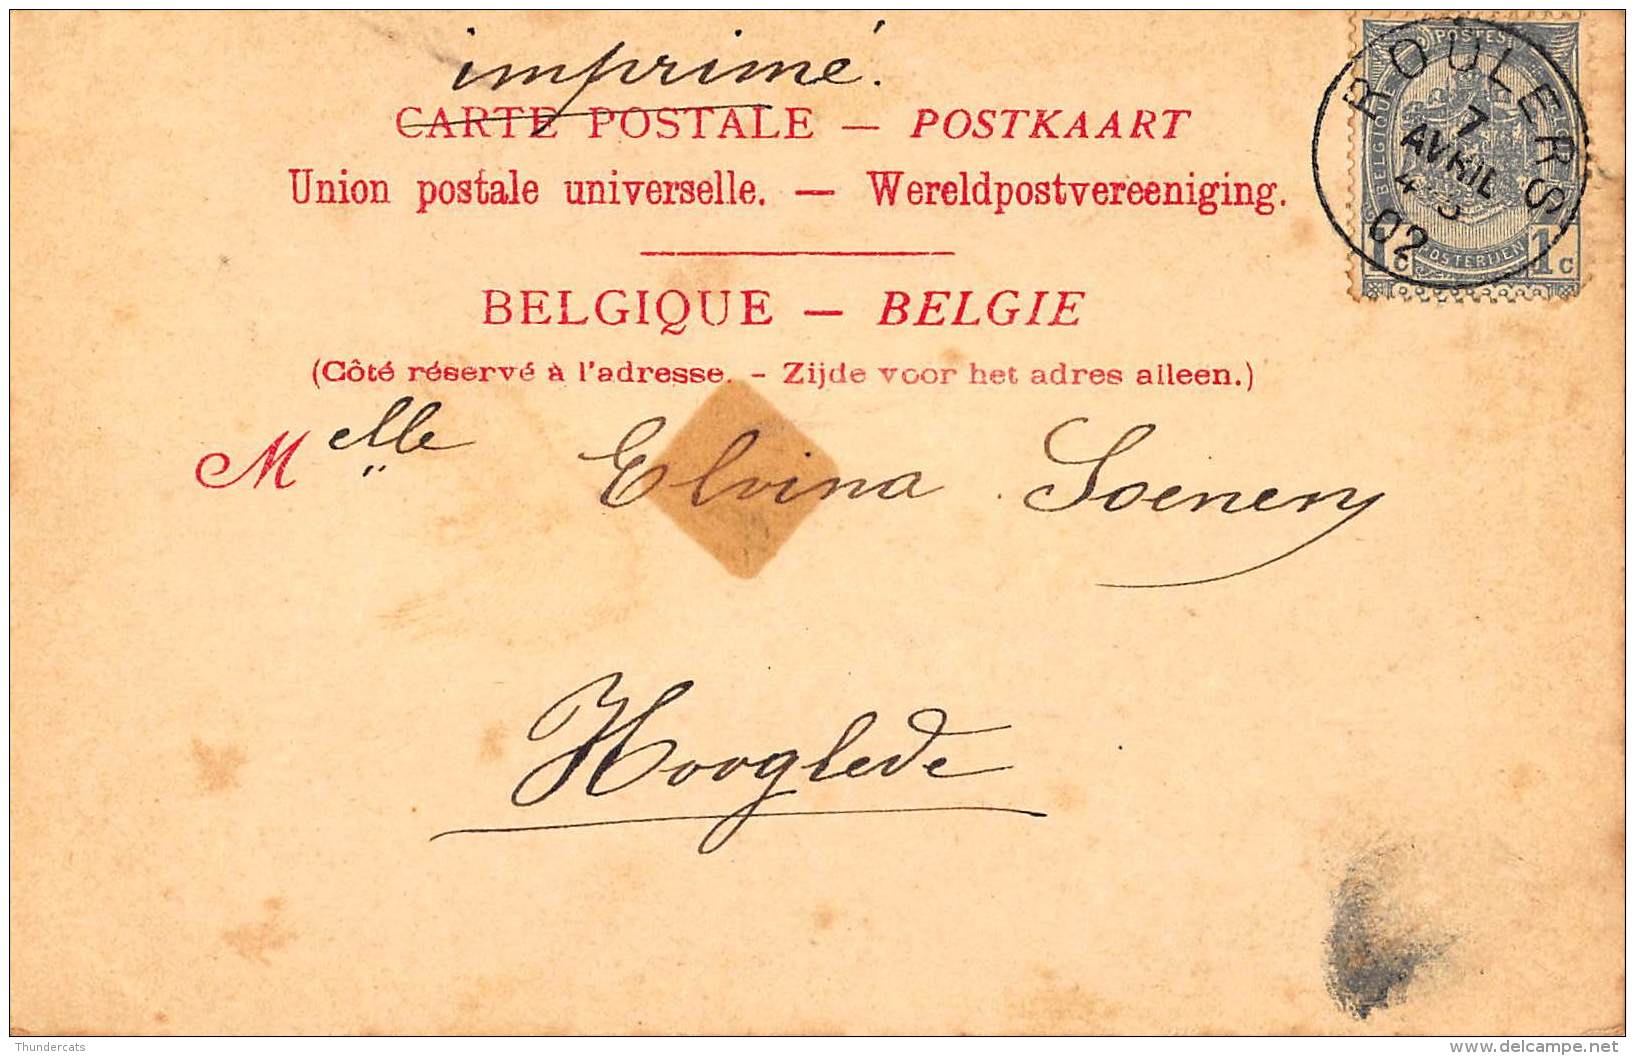 imprimé.
CARTE POSTALE — POSTKAART
Union postale universelle. — Wereldpostvereeniging.
BELGIQUE — BELGIE
(Côté réservé à l'adresse. - Zijde voor het adres alleen.)
Melle Elvina Soenen
Hooglede
ROULERS
7
AVRIL
02
POSTES
BELGIQUE
POSTERIJEN
1c 1c
Thundercats
delcampe.net